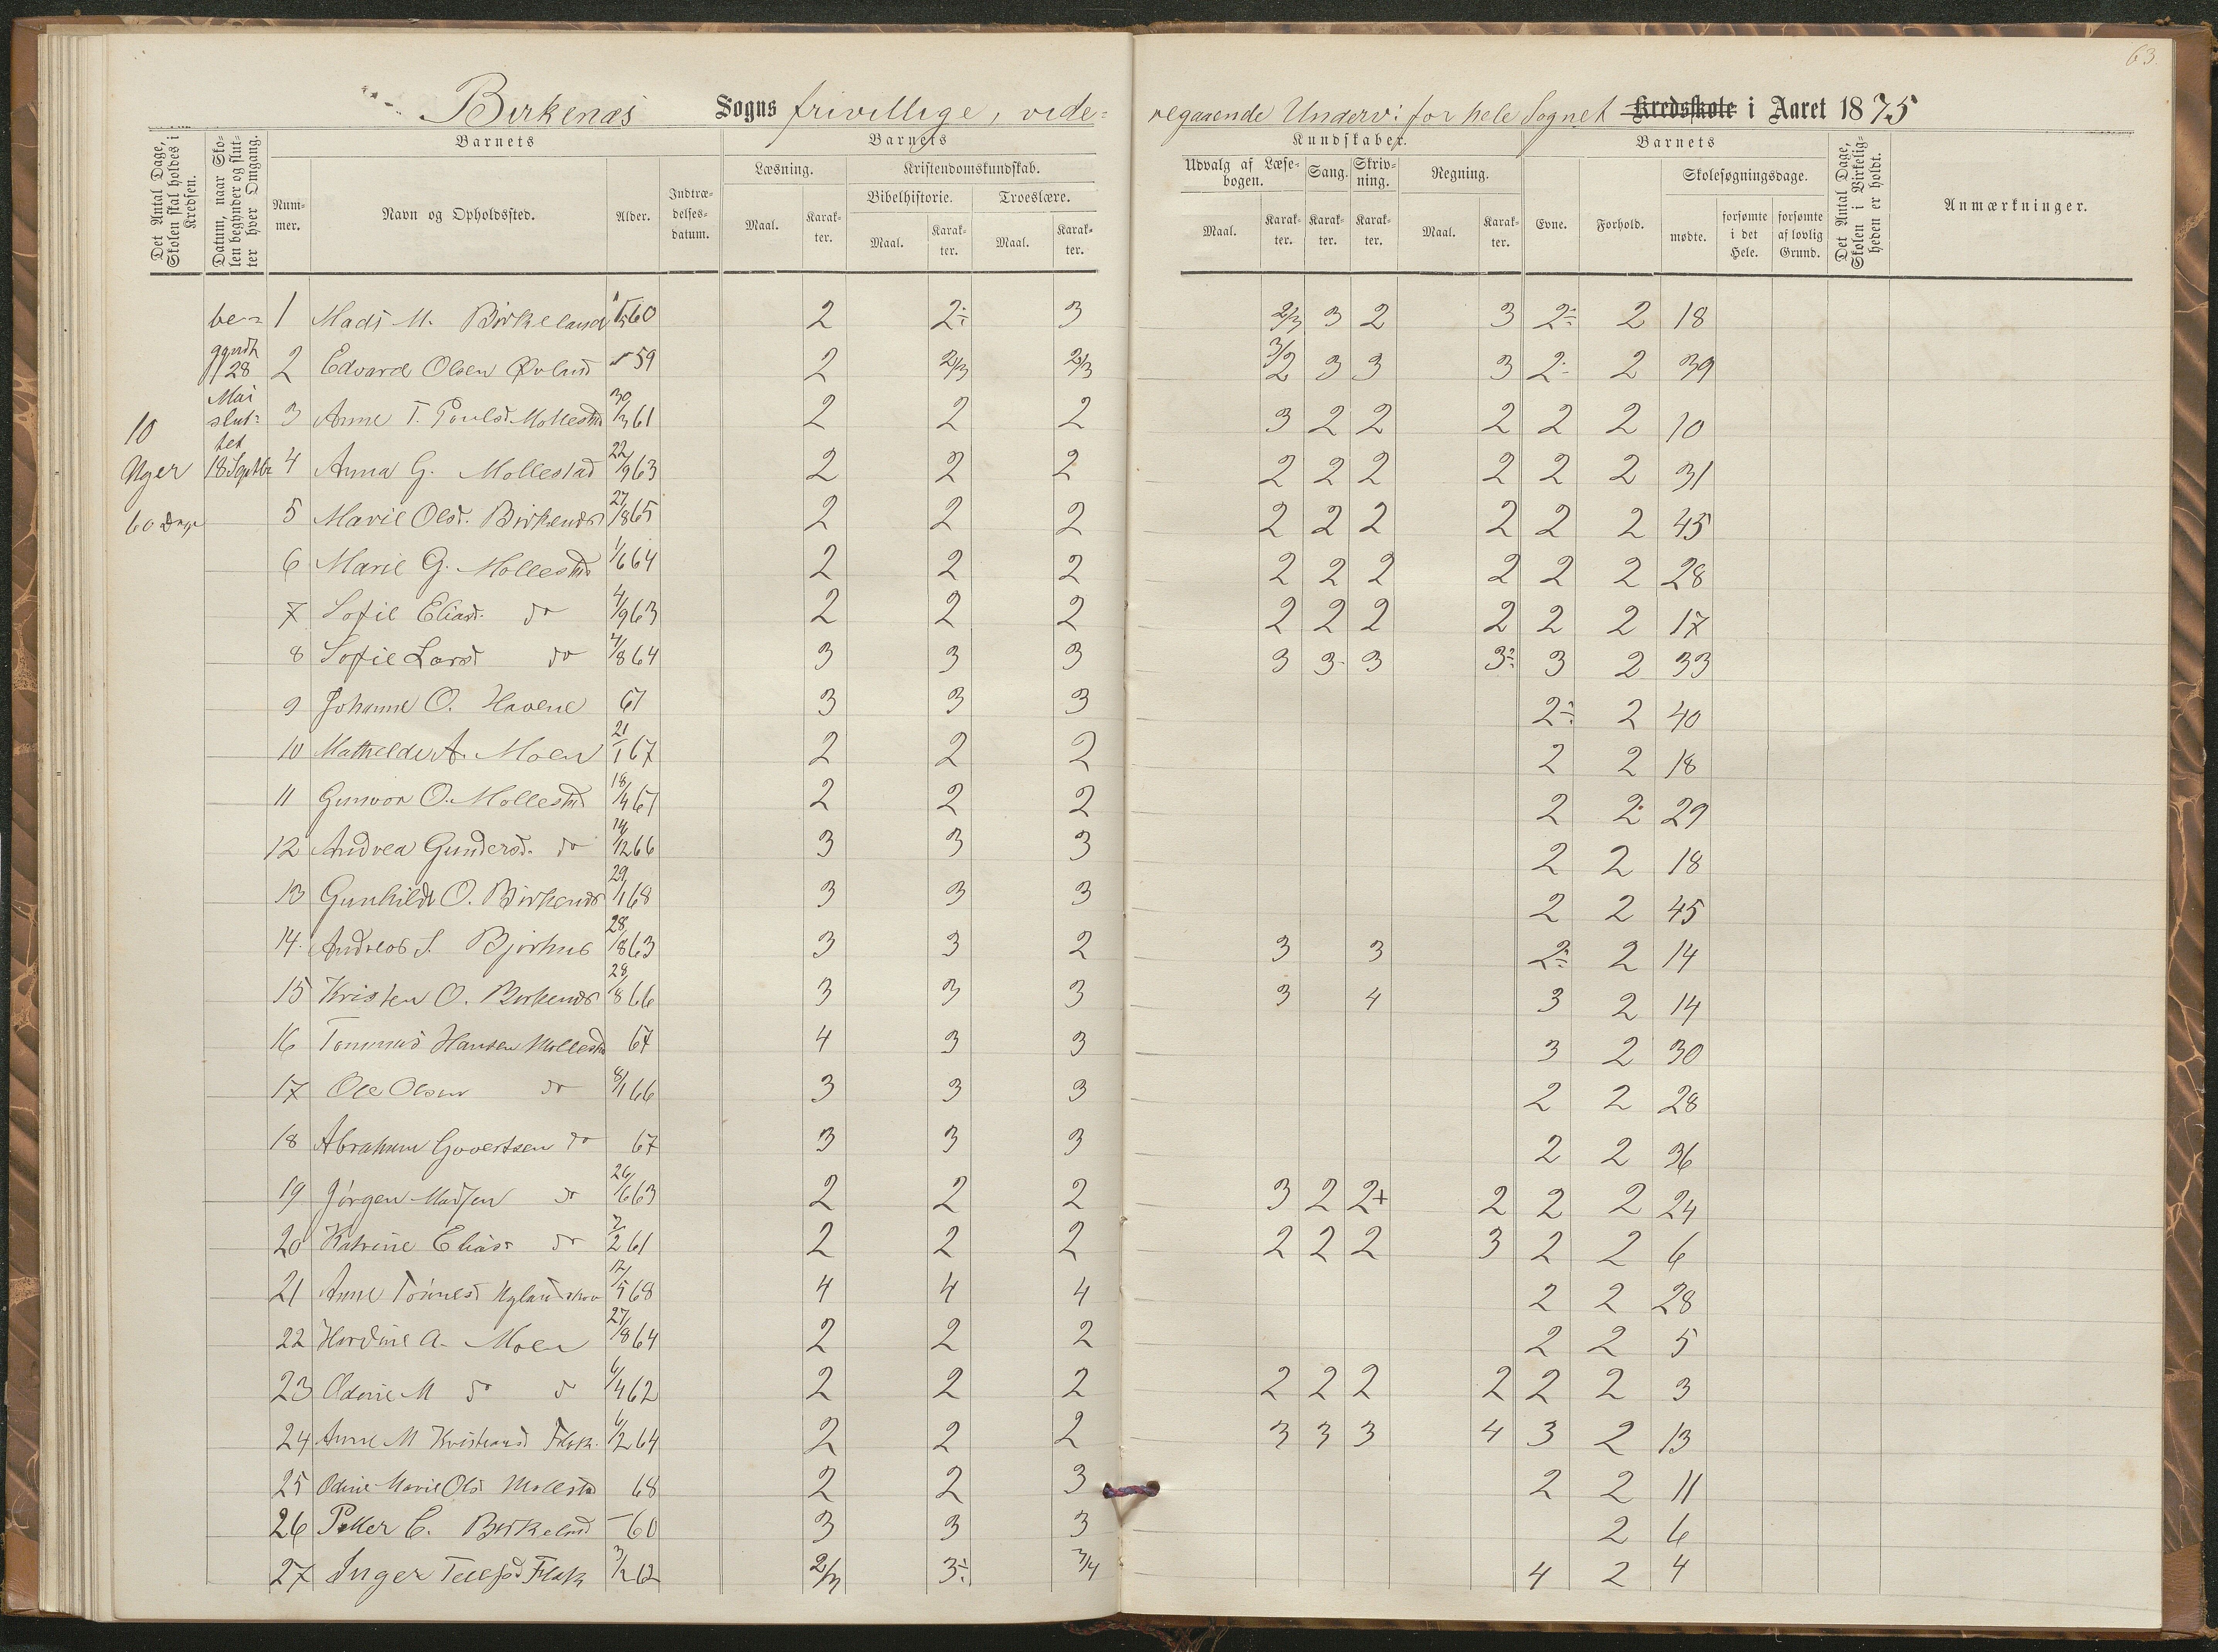 63.
Birkenæs Sogns frivillige, vide-
regaaende Underv: for hele Sognet Kredsskole i Aaret 1875
Det Antal Dage, Skolen skal holdes i Kredsen.
Datum, naar Skolen begynder og slutter hver Omgang.
Barnets
Nummer.
Navn og Opholdssted.
Alder.
Indtrædelsesdatum.
Barnets
Læsning.
Maal.
Karakter.
Kristendomskundskab.
Bibelhistorie.
Maal.
Karakter.
Troeslære.
Maal.
Karakter.
Kundskaber.
Udvalg af Læsebogen.
Maal.
Karakter.
Sang.
Karakter.
Skrivning.
Karakter.
Regning.
Maal.
Karakter.
Barnets
Evne.
Forhold.
Skolesøgningsdage.
mødte.
forsømte i det Hele.
forsømte af lovlig Grund.
Det Antal Dage, Skolen i Virkeligheden er holdt.
Anmærkninger.
10
Uger
60 Dage
be-
gyndt
28
Mai
slut-
tet
18 Septbr
1 Mads M. Birkeland 60 2 2÷ 3 2/3 3 2 3 2÷ 2 18
2 Edvard Olsen Øvland 59 2 2/3 2/3 3/2 3 3 3 2- 2 39
3 Anne T. Poulsd. Mollestad 30/3 61 2 2 2 3 2 2 2 2 2 10
4 Anna G. Mollestad 22/9 63 2 2 2 2 2 2 2 2 2 31
5 Marie Olsd. Birkenæs 27/8 65 2 2 2 2 2 2 2 2 2 45
6 Marie G. Mollestad 1/6 64 2 2 2 2 2 2 2 2 2 28
7 Sofie Eliasd. do 4/9 63 2 2 2 2 2 2 2 2 2 17
8 Sofie Larsd do 4/8 64 3 3 3 3 3 3 3÷ 3 2 33
9 Johanne O. Havene 67 3 3 3 2÷ 2 40
10 Mathilde A. Moen 21/1 67 2 2 2 2 2 18
11 Gunvor O. Mollestad 18/4 67 2 2 2 2 2 29
12 Andrea Gundersd. do 14/12 66 3 3 3 2 2 18
13 Gunhilde O. Birkenæs 29/1 68 3 3 3 2 2 45
14. Andreas S. Bjorhus 28/8 63 3 3 2 3 3 2÷ 2 14
15 Kristen O. Birkenæs 28/8 66 3 3 3 3 4 3 2 14
16 Tommas Hansen Mollestad 67 4 3 3 3 2 30
17 Ole Olsen do 8/1 66 3 3 3 2 2 28
18 Abraham Govertsen do 67 3 3 3 2 2 36
19 Jørgen Madsen do 26/6 63 2 2 2 3 2 2+ 2 2 2 24
20 Katrine Eliasd do 7/2 61 2 2 2 2 2 2 3 2 2 6
21 Anne Tønnesd 17/5 68 4 4 4 2 2 28
22 A. Moen 27/8 64 2 2 2 2 2 5
23 Odine M do do 6/4 62 2 2 2 2 2 2 2 2 2 3
24 Anne M Kristiansd Flak. 6/12 64 2 2 2 3 3 3 4 3 2 13
25 Odine Marie Olsd Mollestad 68 2 2 3 2 2 11
26 Peder C. Birkeland - 60 3 3 3 2 6
27 Inger Tellefsd Flak 3/12 62 2/3 3÷ 3/4 4 2 4